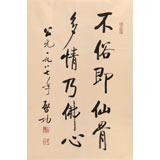 不俗即仙骨
多情乃佛心
公元一九八七年 启功